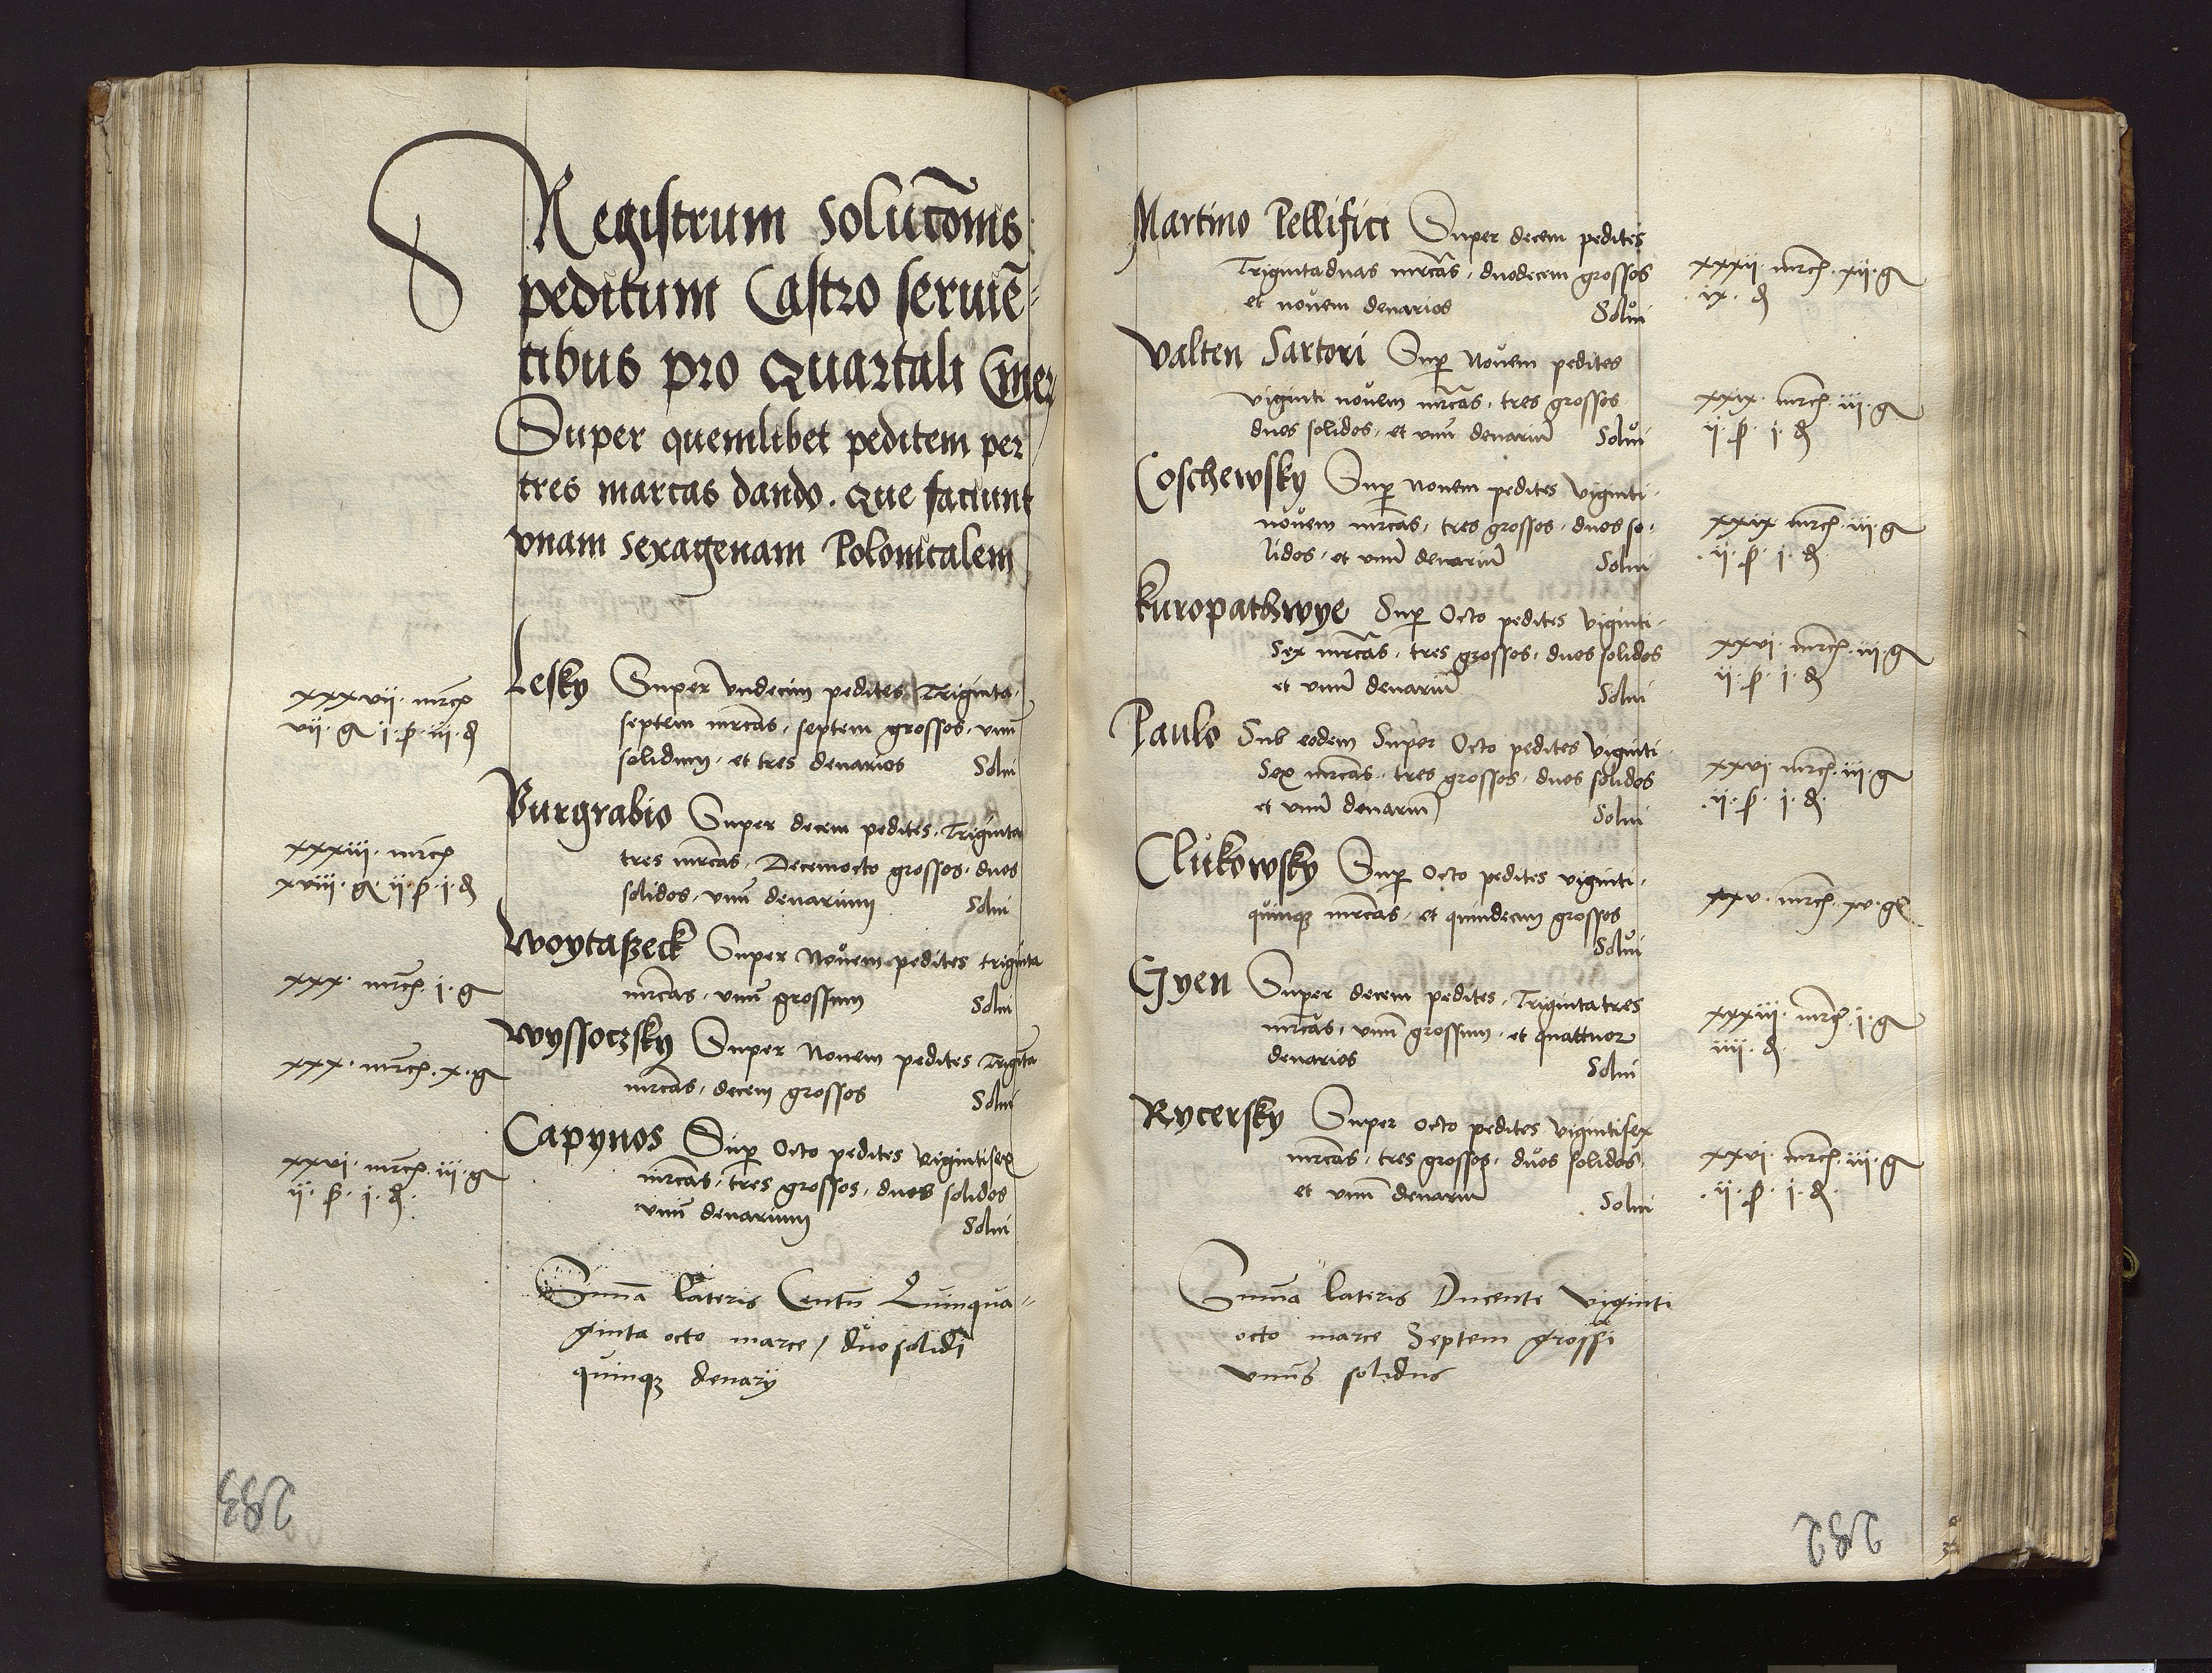 Registrum Solucōnis
peditum Castro seruiē-
tibus pro Quartali Ciner
Super quemlibet peditem per
tres marcas dando. Que faciunt
vnam sexagenam Polonicalem
xxxvii. mrcẜ
vii. g i. ẜ. iii. ₰
Lesky Super Vndecim pedites Triginta
septem mrcas, septem grossos, vnū
solidum, et tres denarios Solui
xxxiii. mrcẜ
xviii. g. ii. ẜ. i. ₰
Burgrabio Super decem pedites, Triginta
tres mrcas, Decemocto grossos, duos
solidos, vnū denarium Solui
xxx. mrcẜ. i. g
Woytaßeck Super Nouem pedites triginta
mrcas, vnū grossum Solui
xxx. mrcẜ. x. g
Wyssoczsky Super Nouem pedites Trigīta
mrcas, decem grossos Solui
xxvi. mrcẜ. iii. g
ii. ẜ. i. ₰.
Capynos Sup Octo pedites vigintisex
mrcas, tres grossos, duos solidos
vnū denarium Solui
Suma lateris Centū Quinqua-
ginta octo marce / duo solidi
quinqꝫ denarÿ
283
Martino Pellifici Super decem pedites
Trigintaduas mrcas, duodecem grossos
et nouem denarios Solui
xxxii. mrcẜ. xii. g
. ix. ₰
Valten Sartori Sup Nouem pedites
viginti nouem mrcas, tres grossos
duos solidos, et vnū denariū Solui
xxix. mrcẜ. iii. g
ii. ẜ. i. ₰
Coschewsky Sup nouem pedites viginti-
nouem mrcas, tres grossos, duos so-
lidos, et vnū denariū Solui
xxix mrcẜ. iii. g
. ii. ẜ i. ₰.
Kuropathwye Sup Octo pedites viginti-
Sex mrcas, tres grossos, duos solidos
et vnū denariū Solui
xxvi. mrcẜ. iii. g
ii. ẜ. i. ₰
Paulo Sub eodem Super Octo pedites viginti
Sex mrcas, tres grossos, duos solidos
et vnū denariū Solui
xxvi. mrcẜ. iii. g
. ii. ẜ. i. ₰.
Clukowsky Sup Octo pedites viginti-
quinqꝫ mrcas, et quindecim grossos
Solui
xxv. mrcẜ. xv. g
Gyen Super decem pedites, Trigintatres
mrcas, vnū grossum, et quattuor
denarios Solui
xxxiii. mrcẜ. i. g
iiii. ₰.
Rycersky Super octo pedites vigintisex
mrcas, tres grossos, duos solidos,
et vnū denariū Solui
xxvi. mrcẜ. iii. g
. ii. ẜ. i. ₰.
Suma lateris Ducente viginti
octo marce Septem grossi
vnus solidus
282